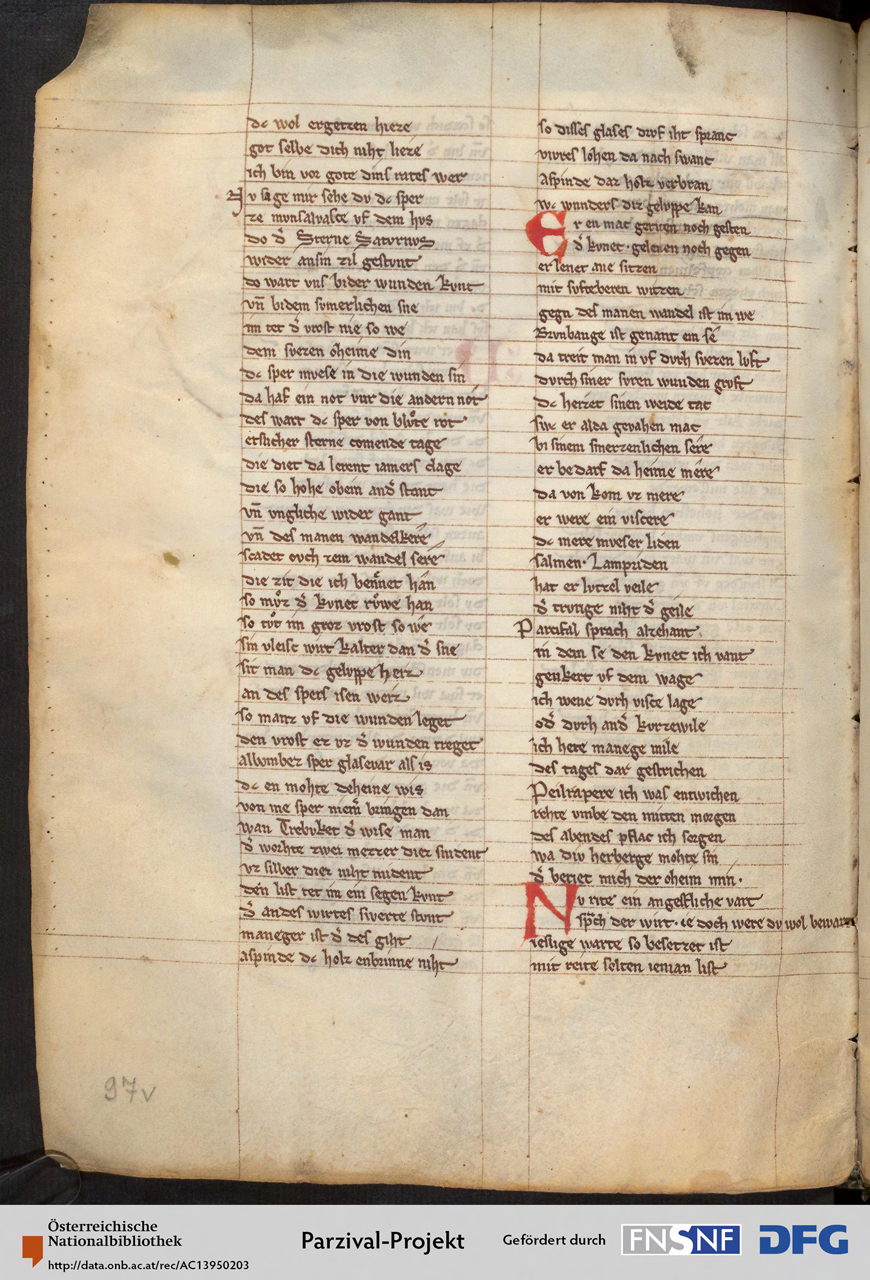 dc wol ergetzen hieze
got selbe dich niht lieze
ich bin vor gote dins rates wer
Nv sage mir sehe dv dc sper
ze mvnsalvasce vf dem hvs
do d̄ Sterne Saturnus
wider ansin zil gestvnt
do wart vns bider wunden kvnt
vn̄ bidem svmerlichen sne
im tet d̄ vrost nie so we
dem svezen oheime din
dc sper mvese in die wunden sin
da half ein not vur die andern not
des wart dc sper von blůte rot
etslicher sterne comende tage
die diet da lerent iamers clage
die so hohe obein and̄ stant
vn̄ vngliche wider gant
vn̄ des manen wandelkere
scadet ovch zem wandel sere
die zit die ich bennet han
so můz d̄ kvnec růwe han
so tůt im groz vrost so we
sin vleisc wirt kalter dan d̄ sne
sit man dc gelvppe heiz
an des spers isen weiz
so manz vf die wunden leget
den vrost ez vz d̄ wunden treget
alvmbez sper glasevar als is
dc en mohte deheine wis
von me sper niem̄ bringen dan
wan Trebvket d̄ wise man
d̄ worhte zwei mezzer diez snident
vz silber diez niht mident
den list tet im ein segen kvnt
d̄ andes wirtes swerte stvnt
maneger ist d̄ des giht
aspinde dc holz enbrinne niht
so disses glases drvf iht spranc
vivres lohen da nach swanc
Aspinde daz holz verbran
wc wunders diz gelvppe kan
Er en mac geriten noch gesten
d̄ kvnec · geleien noch gegen
er lenet ane sitzen
mit svfteberen witzen
gegn des manen wandel ist im we
Brvnbange ist genant ein se
da treit man in vf dvrch svezen lvft
dvrch siner svren wunden gruft
dc heizet sinen weide tac
swc er alda gevahen mac
bi sinem smerzenlichen sere
er bedarf da heime mere
da von kom vz mere
er were ein viscere
dc mere mveser liden
salmen · Lampriden
hat er lvtzel veile
d̄ trvrige niht d̄ geile
Parcifal sprach alzehant
in dem se den kvnec ich vant
genkert vf dem wage
ich wene dvrh visce lage
od̄ dvrh and̄ kvrzewile
ich hete manege mile
des tages dar gestrichen
Peilrapere ich was entwichen
rehte vmbe den mitten morgen
des abendes pflac ich sorgen
wa div herberge mohte sin
d̄ beriet mich der oheim min ·
Nv rite ein angestliche vart
sp̄ch der wirt · ie doch were dv wol bewart
ieslige warte so besetzet ist
mit reite selten ieman list
97v
Österreichische
Nationalbibliothek
http://data.onb.ac.at/rec/AC13950203
Parzival-Projekt
Gefördert durch
FNSNF
DFG